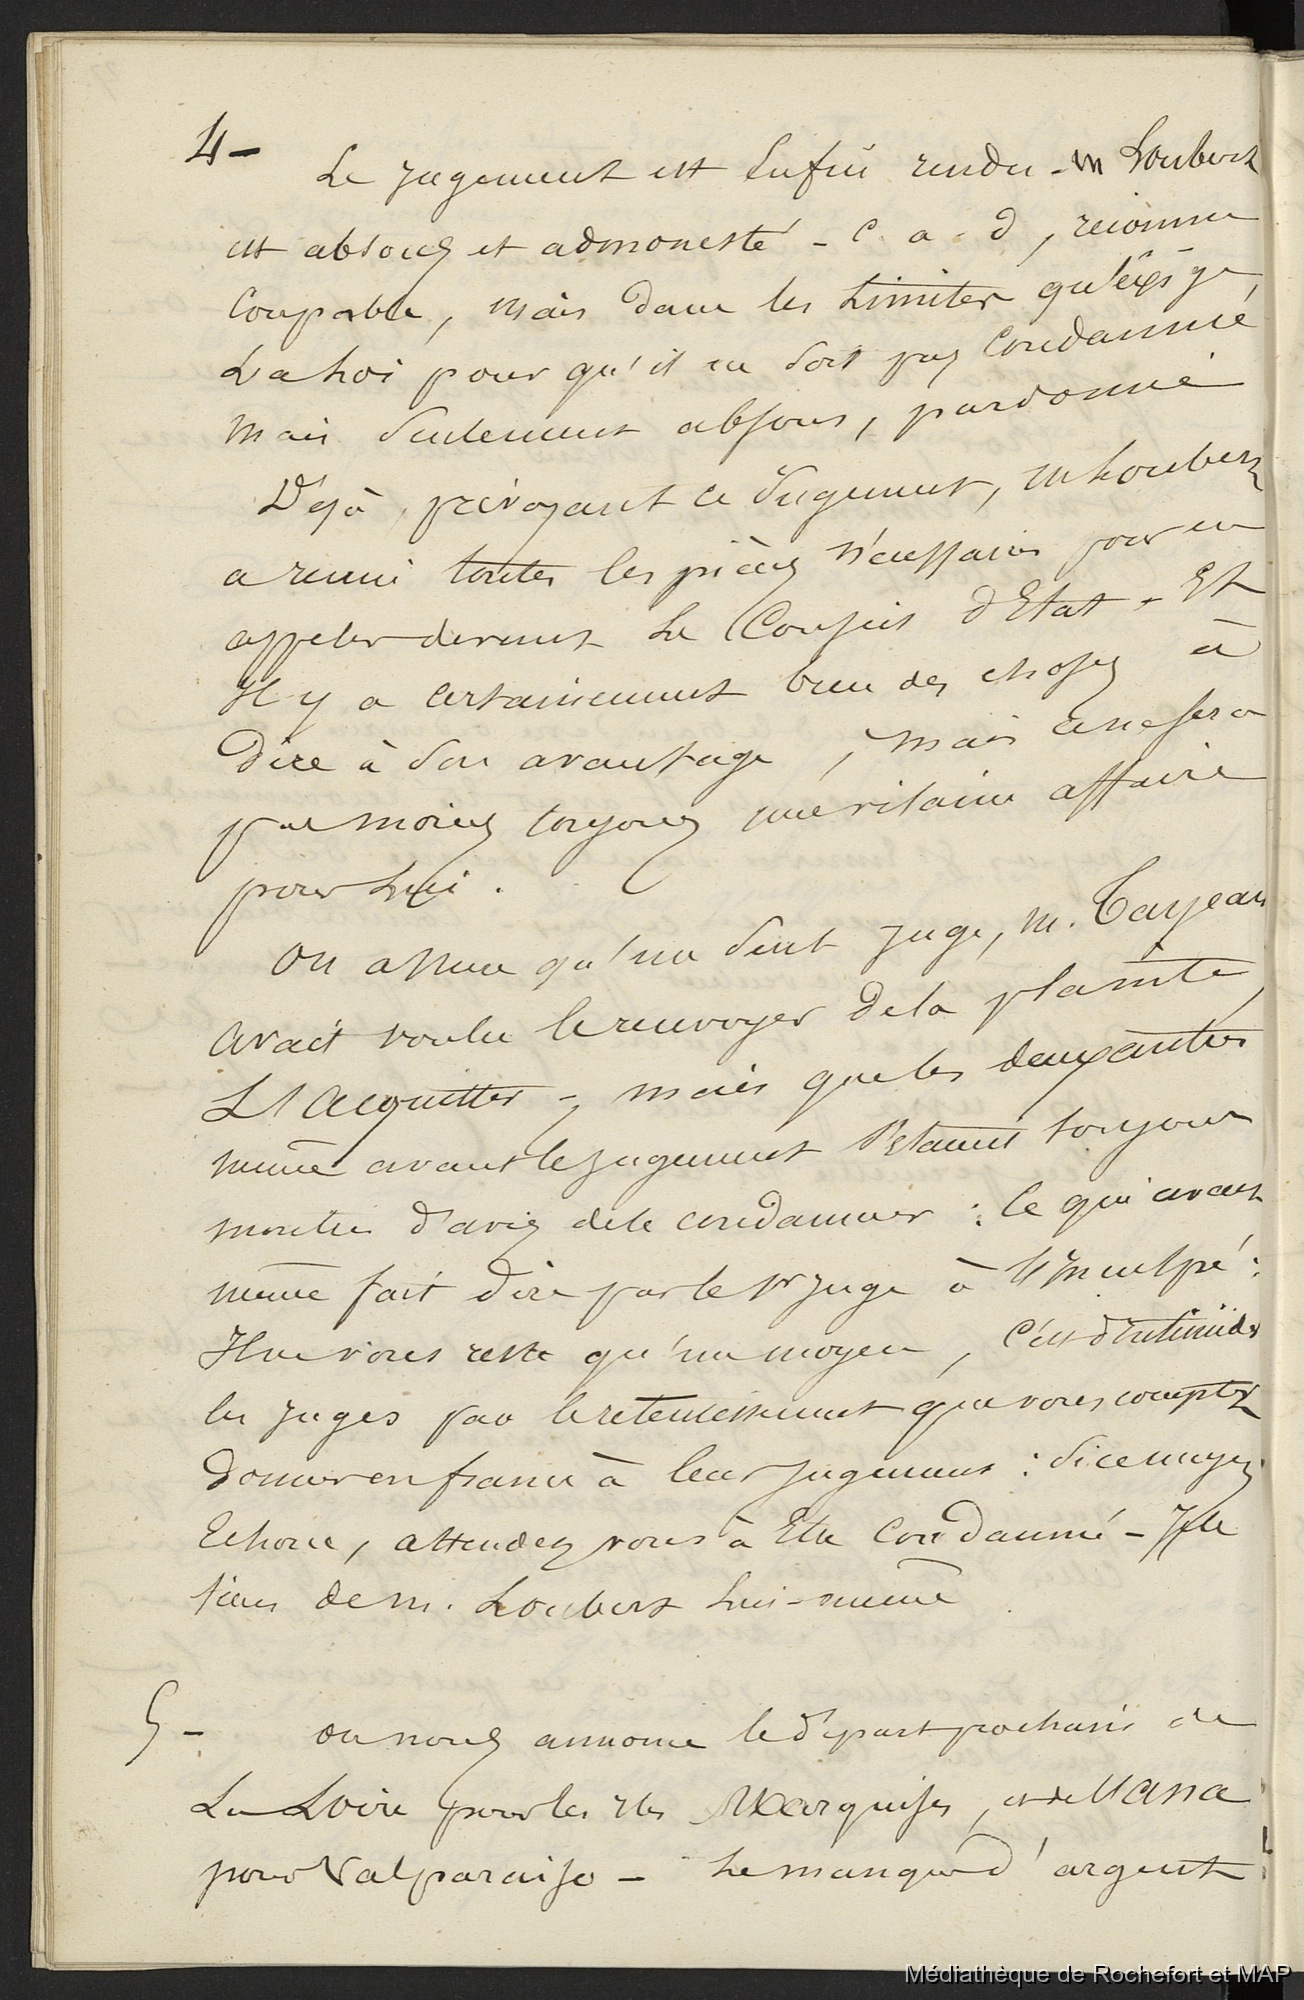 4- Le jugement est Enfin rendu - M Loubert
est absous et admonesté - c. a. d, reconnu
Coupable, mais dans les Limites qu'exige
La Loi pour qu'il ne soit pas Condamné
mais seulement absous, pardonné
Déjà, prévoyant ce Jugement, M Loubert
a reuni toutes les pièces nécessaires pour en
appeler devant Le Conseil d'Etat - Et
Il y a certainement bien des choses à
Dire à son avantage, mais ce ne sera
pas moins toujours une vilaine affaire
pour Lui.
On assure qu'un seul juge, M.
avait voulu le renvoyer de la plainte,
L'Acquitter - mais que les deux autres
même avant le jugement s'étaient toujours
montrés d'avis de le condamner : Ce qui avait
même fait dire par le 1er juge à l'Inculpé :
Il ne vous reste qu'un moyen, C'est d'Intimider
les juges par le retentissement que vous comptez
Donner en france à leur jugement : Si ce moyen
Echoue, attendez vous à Etre Condamné - Je le
tiens de M. Loubert Lui-même
5 - On nous annonce le départ prochain de
La Loire pour les Iles Marquises, et
pour Valparaiso - Le manque d'argent
Médiathèque de Rochefort et MAP